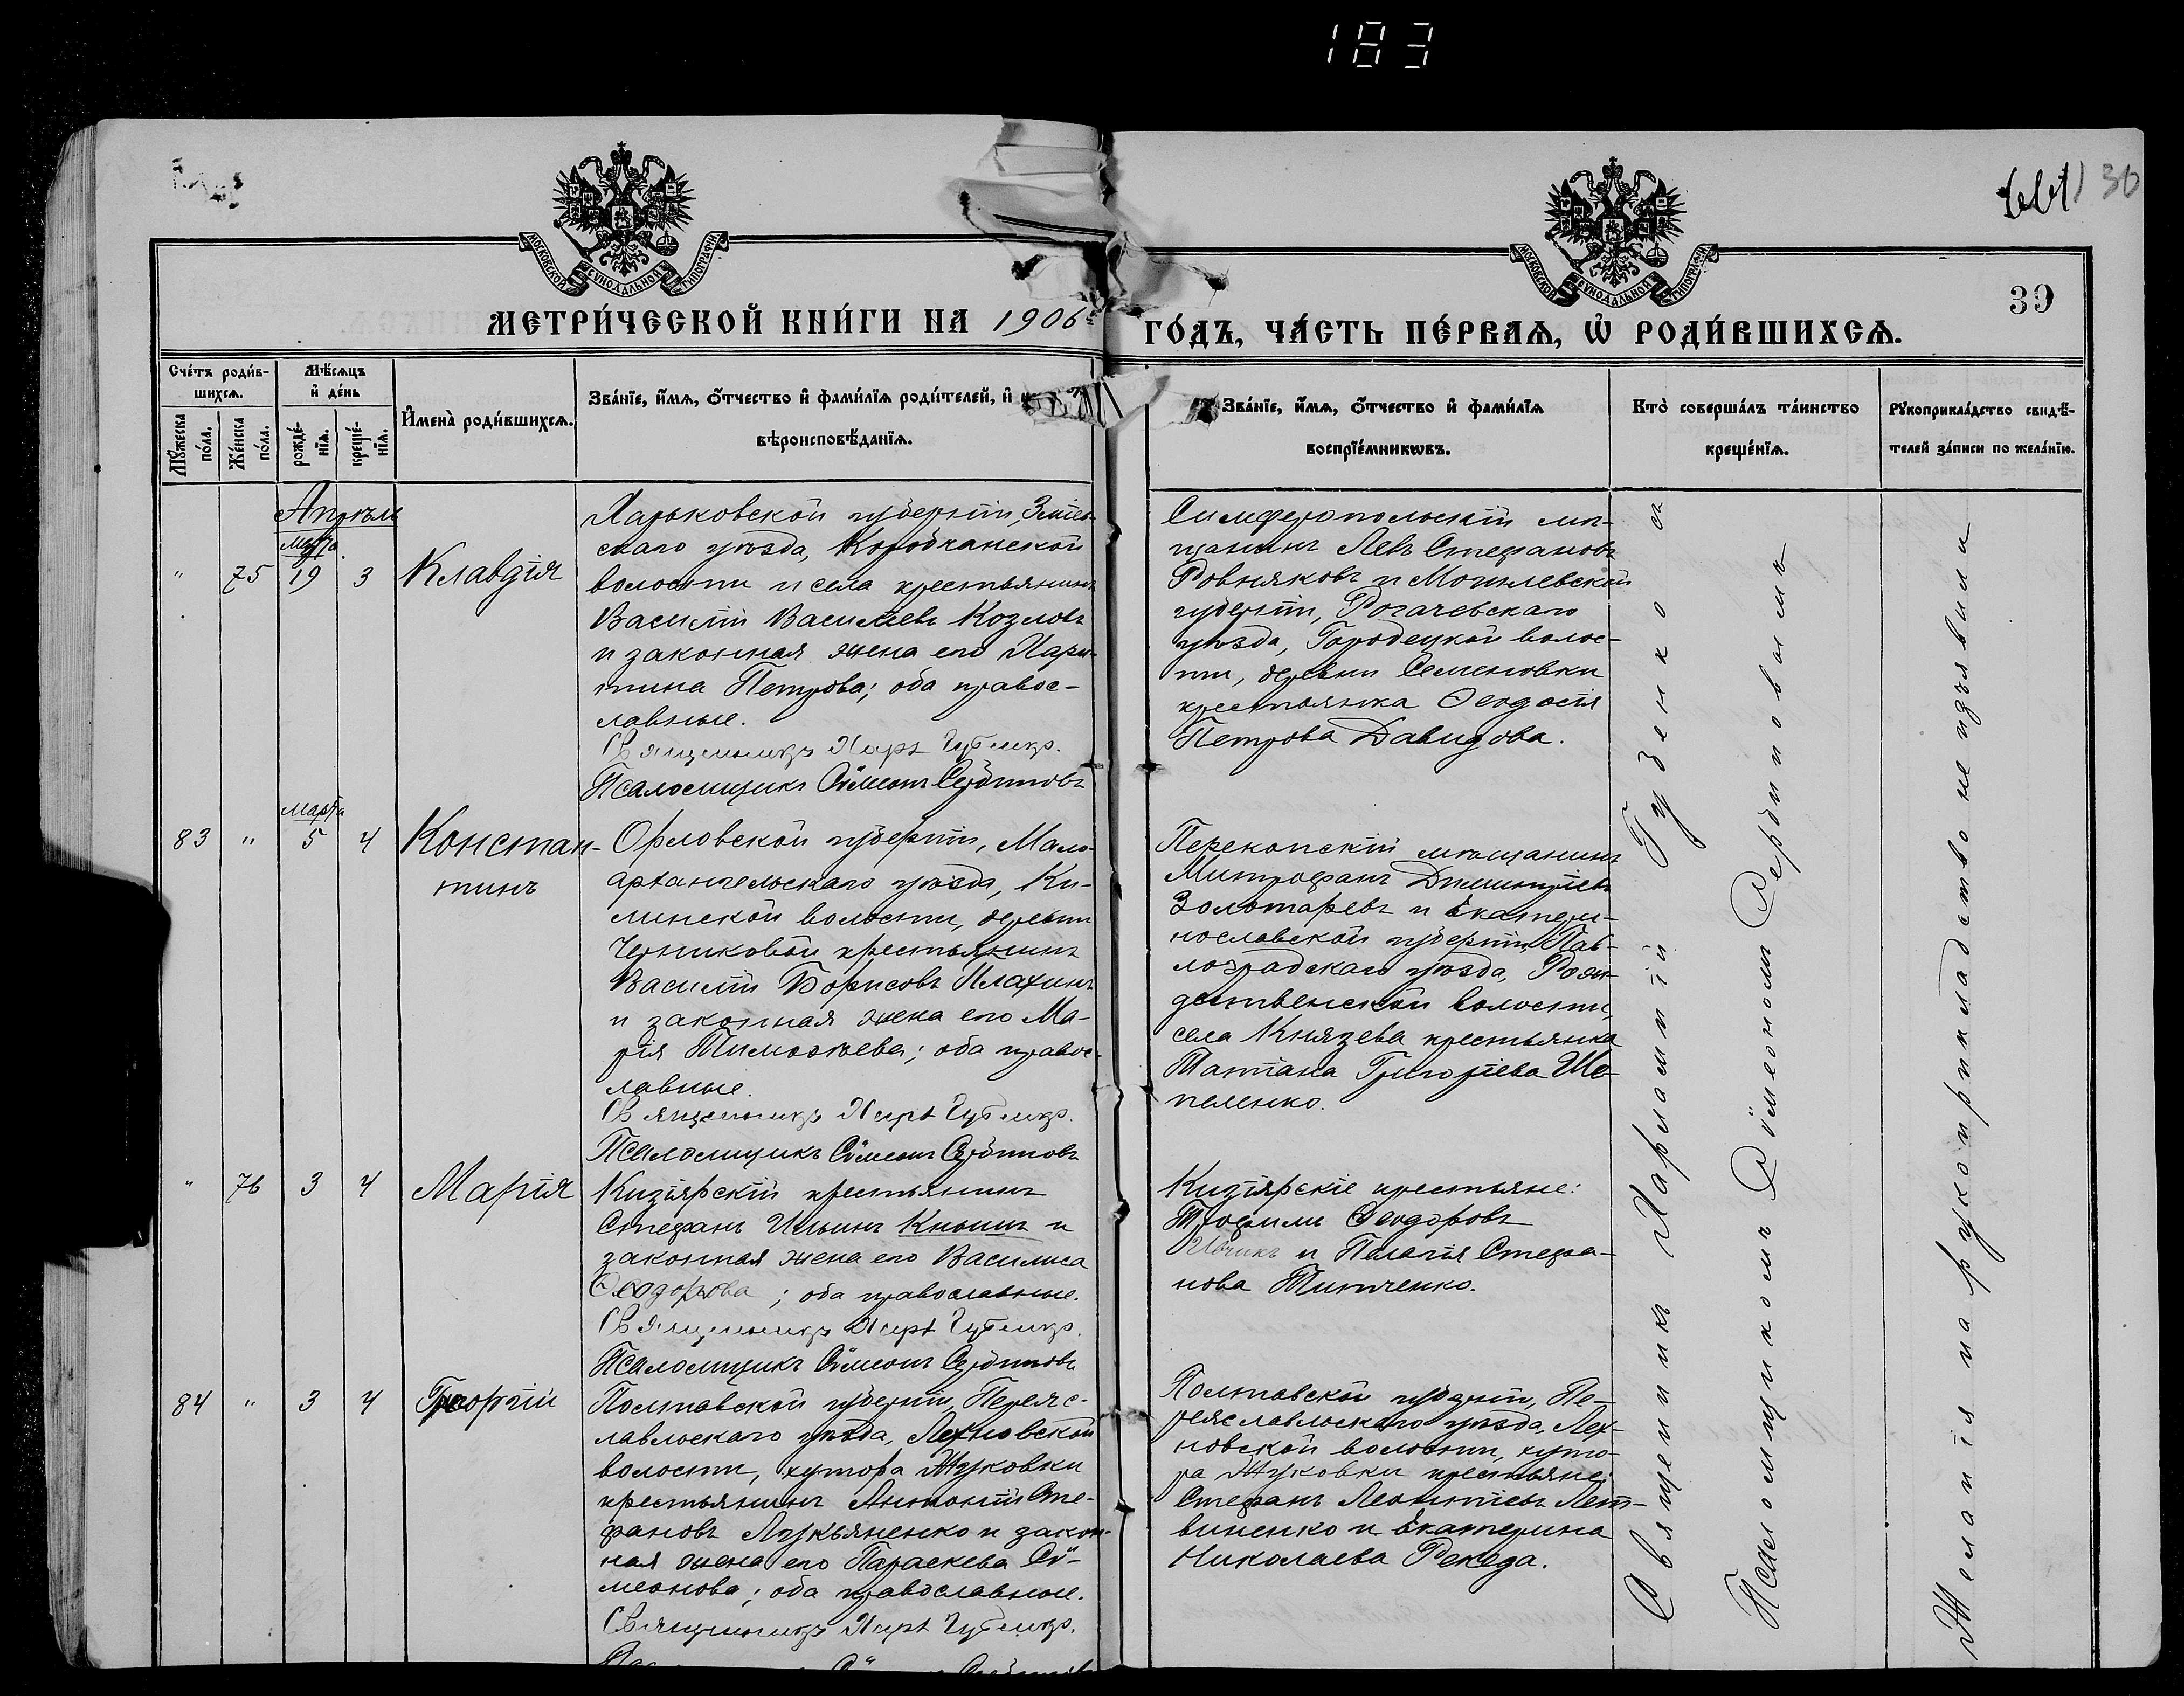 183
30
39
МОСКОВСКОЙ СУНОДАЛЬНОЙ ТИПОГРАФІИ
МОСКОВСКОЙ СУНОДАЛЬНОЙ ТИПОГРАФІИ
МЕТРИ́ЧЕСКОЙ КНИ́ГИ НА 1906 ГО́ДЪ, ЧА́СТЬ ПЕ́РВАѦ, Ѡ РОДИ́ВШИХСѦ.
Сче́тъ роди́в-
шихсѧ.
Мꙋ́жеска
по́ла.
Же́нска
по́ла.
Мѣ́сѧцъ
и҆ де́нь
рожде́-
нїѧ.
креще́-
нїѧ.
И҆мена̀ роди́вшихсѧ.
Зва́нїе, и҆́мѧ, ѻ҆́тчество и҆ фами́лїѧ роди́телей, и҆
вѣроисповѣ́данїѧ.
Зва́нїе, и҆́мѧ, ѻ҆́тчество и҆ фами́лїѧ
воспрїе́мникѡвъ.
Кто̀ соверша́лъ та́инство
креще́нїѧ.
Рꙋкоприкла́дство свидѣ́-
телей за́писи по жела́нїю.
Апрѣль
Марта
" 75 19 3 Клавдія
Харьковской губерніи, Зміев-
скаго уѣзда,
волости и села крестьянинъ
Василій Васильевъ Козловъ
и законная жена его Хари-
тина Петрова; оба правос-
лавные.
Священникъ Харл Губенко.
Псаломщикъ Сѵмеонъ Сердиновъ
Симферопольскій мѣ-
щанинъ Левъ Стефановъ
Ровняковъ и Могилевской
губерніи, Рогачевскаго
уѣзда, Городецкой волос-
ти, деревни Семеновки
крестьянка Ѳеодосія
Петрова Давидова.
марта
83 " 5 4 Констан-
тинъ
Орловской губерніи, Мало-
архангельскаго уѣзда, Ку-
линской волости, деревни
Черниковой крестьянинъ
Василій Борисовъ Плахинъ
и законная жена его Ма-
рія Тимоѳеева; оба правос-
лавные.
Священникъ Харл Губенко.
Псаломщикъ Сѵмеонъ Сердиновъ
Перекопскій мѣщанинъ
Митрофанъ Димитріевъ
Золотаревъ и Екатери-
нославской губерніи, Пав-
лоградскаго уѣзда, Рож-
дественской волости,
села Князева крестьянка
Татіана Григоріева Ше-
пеленко.
" 76 3 4 Марія
Кизіярскій крестьянинъ
Стефанъ Ильинъ Кнышъ и
законная жена его Василиса
Ѳеодорова ; оба православные.
Священникъ Харл Губенко.
Псаломщикъ Сѵмеонъ Сердиновъ
Кизіярскіе крестьяне:
Трофимъ Ѳеодоровъ
и Пелагія Стефа-
нова Титченко.
84 " 3 4 Георгій
Полтавской губерніи, Переяс-
лавльскаго уѣзда, Лехновской
волости, хутора Жуковки
крестьянинъ Антоній Сте-
фановъ Лукьяненко и закон-
ная жена его Параскева Сѵ-
меонова; оба православные.
Священникъ Харл Губенко.
Полтавской губерніи, Пе-
реяславльскаго уѣзда, Лех-
новской волости, хуто-
ра Жуковки крестьяне:
Стефанъ Леонтіевъ Лет-
виненко и Екатерина
Николаева Рекеда.
Священникъ Харлампій Губенко съ
Псаломщикомъ Сѵмеономъ Сердиновымъ
Желанія на рукоприкладство не изъявили